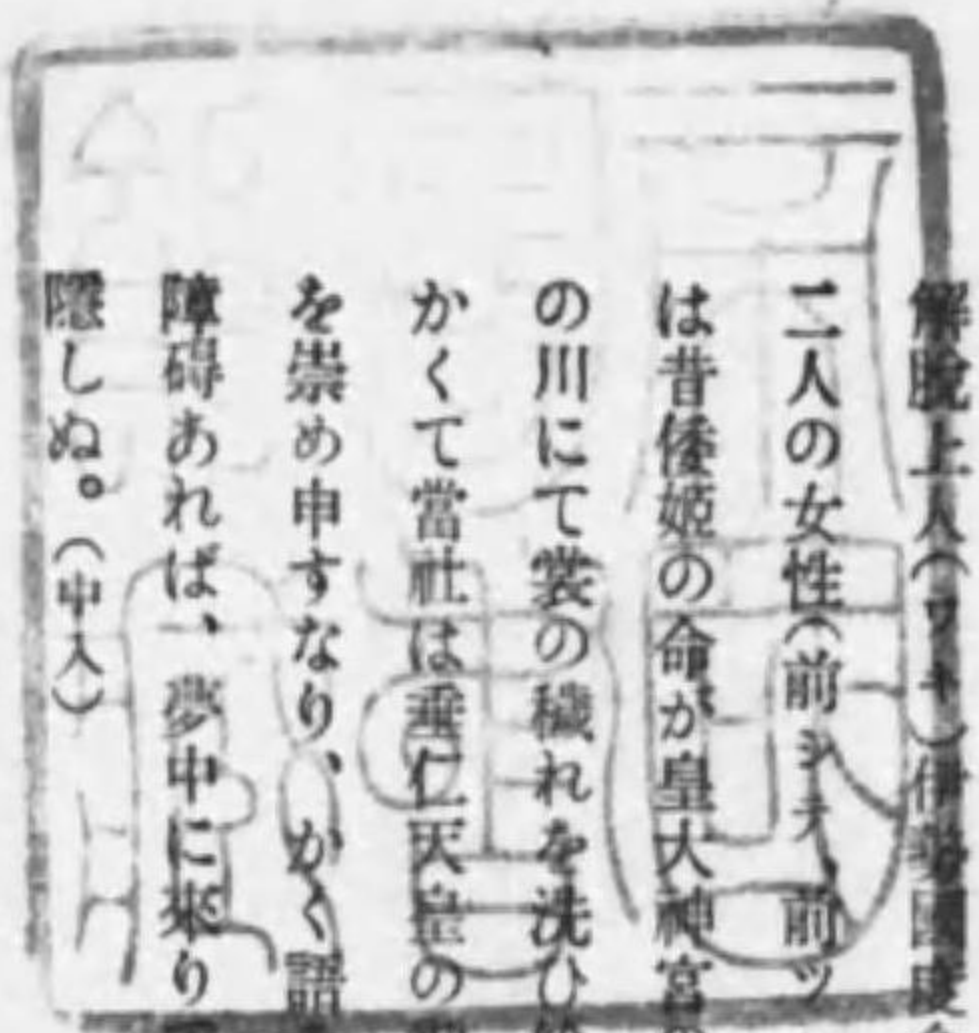 解脫上人(ワキ)伊勢國度
二人の女性(前シテ、前ツ
は昔倭姬の命が皇大神宮
の川にて裳の穢れを洗ひ
かくて當社は垂仁天皇の
を崇め申すなり、かく語
障碍あれば、夢中に來り
隱しぬ。(中入)